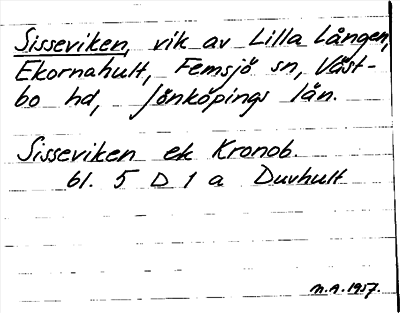 Sisseviken, vik av Lilla Lången,
Ekornahult, Femsjö sn, Väst-
bo hd, Jönköpings län.
Sisseviken ek Kronob.
bl. 5 D 1 a Duvhult
M.A. 1957.